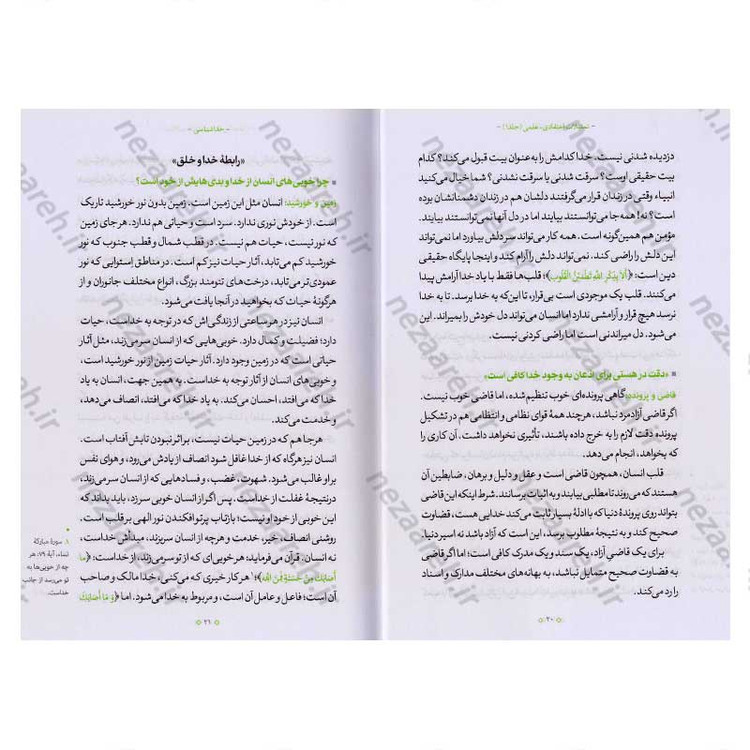 - تمثیلات اعتقادی، علمی (جلد۱) -
دزدیده شدنی نیست. خدا کدامش را به‌عنوان بیت قبول می‌کند؟ کدام
بیت حقیقی اوست؟ سرقت شدنی یا سرقت نشدنی؟ شما خیال می‌کنید
انبیاء وقتی در زندان قرار می‌گرفتند دلشان هم در زندان دشمنانشان بوده
است؟ نه! همه جا می‌توانستند بیایند اما در دل آنها نمی‌توانستند بیایند.
مؤمن هم همین‌گونه است. همه کار می‌تواند سر دلش بیاورد اما نمی‌تواند
این دلش را راضی کند. نمی‌تواند دلش را آرام کند و اینجا پایگاه حقیقی
دین است: ﴿أَلا بِذِکْرِ اللهِ تَطْمَئِنُّ الْقُلُوب﴾ قلب‌ها فقط با یاد خدا آرامش پیدا
می‌کنند. قلب یک موجودی است بی‌قرار، تا این‌که به خدا برسد. تا به خدا
نرسد هیچ قرار و آرامشی ندارد اما انسان می‌تواند دل خودش را بمیراند. این
می‌شود. دل میراندنی است اما راضی کردنی نیست.
«دقت در هستی برای اذعان به وجود خدا کافی است»
قاضی و پرونده: گاهی پرونده‌ای خوب تنظیم شده، اما قاضی خوب نیست.
اگر قاضی آزادمرد نباشد، هرچند همهٔ قوای نظامی و انتظامی هم در تشکیل
پرونده دقت لازم را به خرج داده باشند، تأثیری نخواهد داشت. آن کاری را
که بخواهد، انجام می‌دهد.
قلب انسان، همچون قاضی است و عقل و دلیل و برهان، ضابطین آن
هستند که می‌روند تا مطلبی بیابند و به اثبات برسانند. شرط اینکه این قاضی
بتواند روی پروندهٔ دنیا که با ادلهٔ بسیار ثابت می‌کند خدایی هست، قضاوت
صحیح کند و به نتیجهٔ مطلوب برسد، این است که آزاد باشد نه اسیر دنیا.
برای یک قاضی آزاد، یک سند و یک مدرک کافی است؛ اما اگر قاضی
به قضاوت صحیح متمایل نباشد، به بهانه‌های مختلف مدارک و اسناد
را رد می‌کند.
۲۰
- خداشناسی -
«رابطهٔ خدا و خلق»
چرا خوبی‌های انسان از خدا و بدی‌هایش از خود است؟
زمین و خورشید: انسان مثل این زمین است. زمین بدون نور خورشید تاریک
است. از خودش نوری ندارد. سرد است و حیاتی هم ندارد. هر جای زمین
که نور نیست، حیات هم نیست. در قطب شمال و قطب جنوب که نور
خورشید کم می‌تابد، آثار حیات نیز کم است. در مناطق استوایی که نور
عمودی‌تر می‌تابد، درخت‌های تنومند بزرگ، انواع مختلف جانوران و از
هرگونهٔ حیات که بخواهید در آنجا یافت می‌شود.
انسان نیز در هر ساعتی از زندگی‌اش که در توجه به خداست، حیات
دارد؛ فضیلت و کمال دارد. خوبی‌هایی که از انسان سر می‌زند، مثل آثار
حیاتی است که در زمین وجود دارد. آثار حیات زمین از نور خورشید است،
و خوبی‌های انسان از آثار توجه به خداست. به همین جهت، انسان به یاد
خدا که می‌افتد، احسان می‌کند. به یاد خدا که می‌افتد، انصاف می‌دهد،
و خدمت می‌کند.
هر جا هم که در زمین حیات نیست، بر اثر نبودن تابش آفتاب است.
انسان نیز هرگاه که از خدا غافل شود انصاف از یادش می‌رود، و هوای نفس
بر او غالب می‌شود. شهوت، غضب، و فسادهایی که از انسان سر می‌زند،
درنتیجهٔ غفلت از خداست. پس اگر از انسان خوبی سرزد، باید بداند که
این خوبی از خود او نیست؛ بازتاب پرتوافکندن نور الهی بر قلب است.
روشنی انصاف، خیر، خدمت و هرچه از انسان سر بزند، مبدأش خداست،
نه انسان. قرآن می‌فرماید: هر خوبی‌ای که از تو سر می‌زند، از خداست؛ ﴿ما
أَصابَکَ مِنْ حَسَنَةٍ فَمِنَ الله﴾؛۱ هر کار خیری که می‌کنی، خدا مالک و صاحب
آن است؛ فاعل و عامل آن است، و مربوط به خدا می‌شود. اما ﴿وَ ما أَصابَکَ
۱. سورهٔ مبارکهٔ
نساء، آیهٔ ۷۹، هر
چه از خوبی‌ها به
تو می‌رسد از جانب
خداست.
۲۱
nezaareh.ir